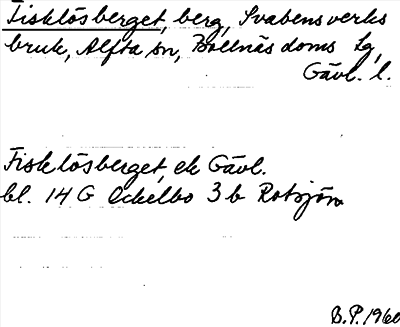 Fisklösberget, berg, Svabensverks
bruk, Alfta sn, Bollnäs doms lg,
Gävl. l.
Fisklösberget, ek Gävl.
bl. 14 G Ockelbo 3 b Rotsjön
B.P. 1960